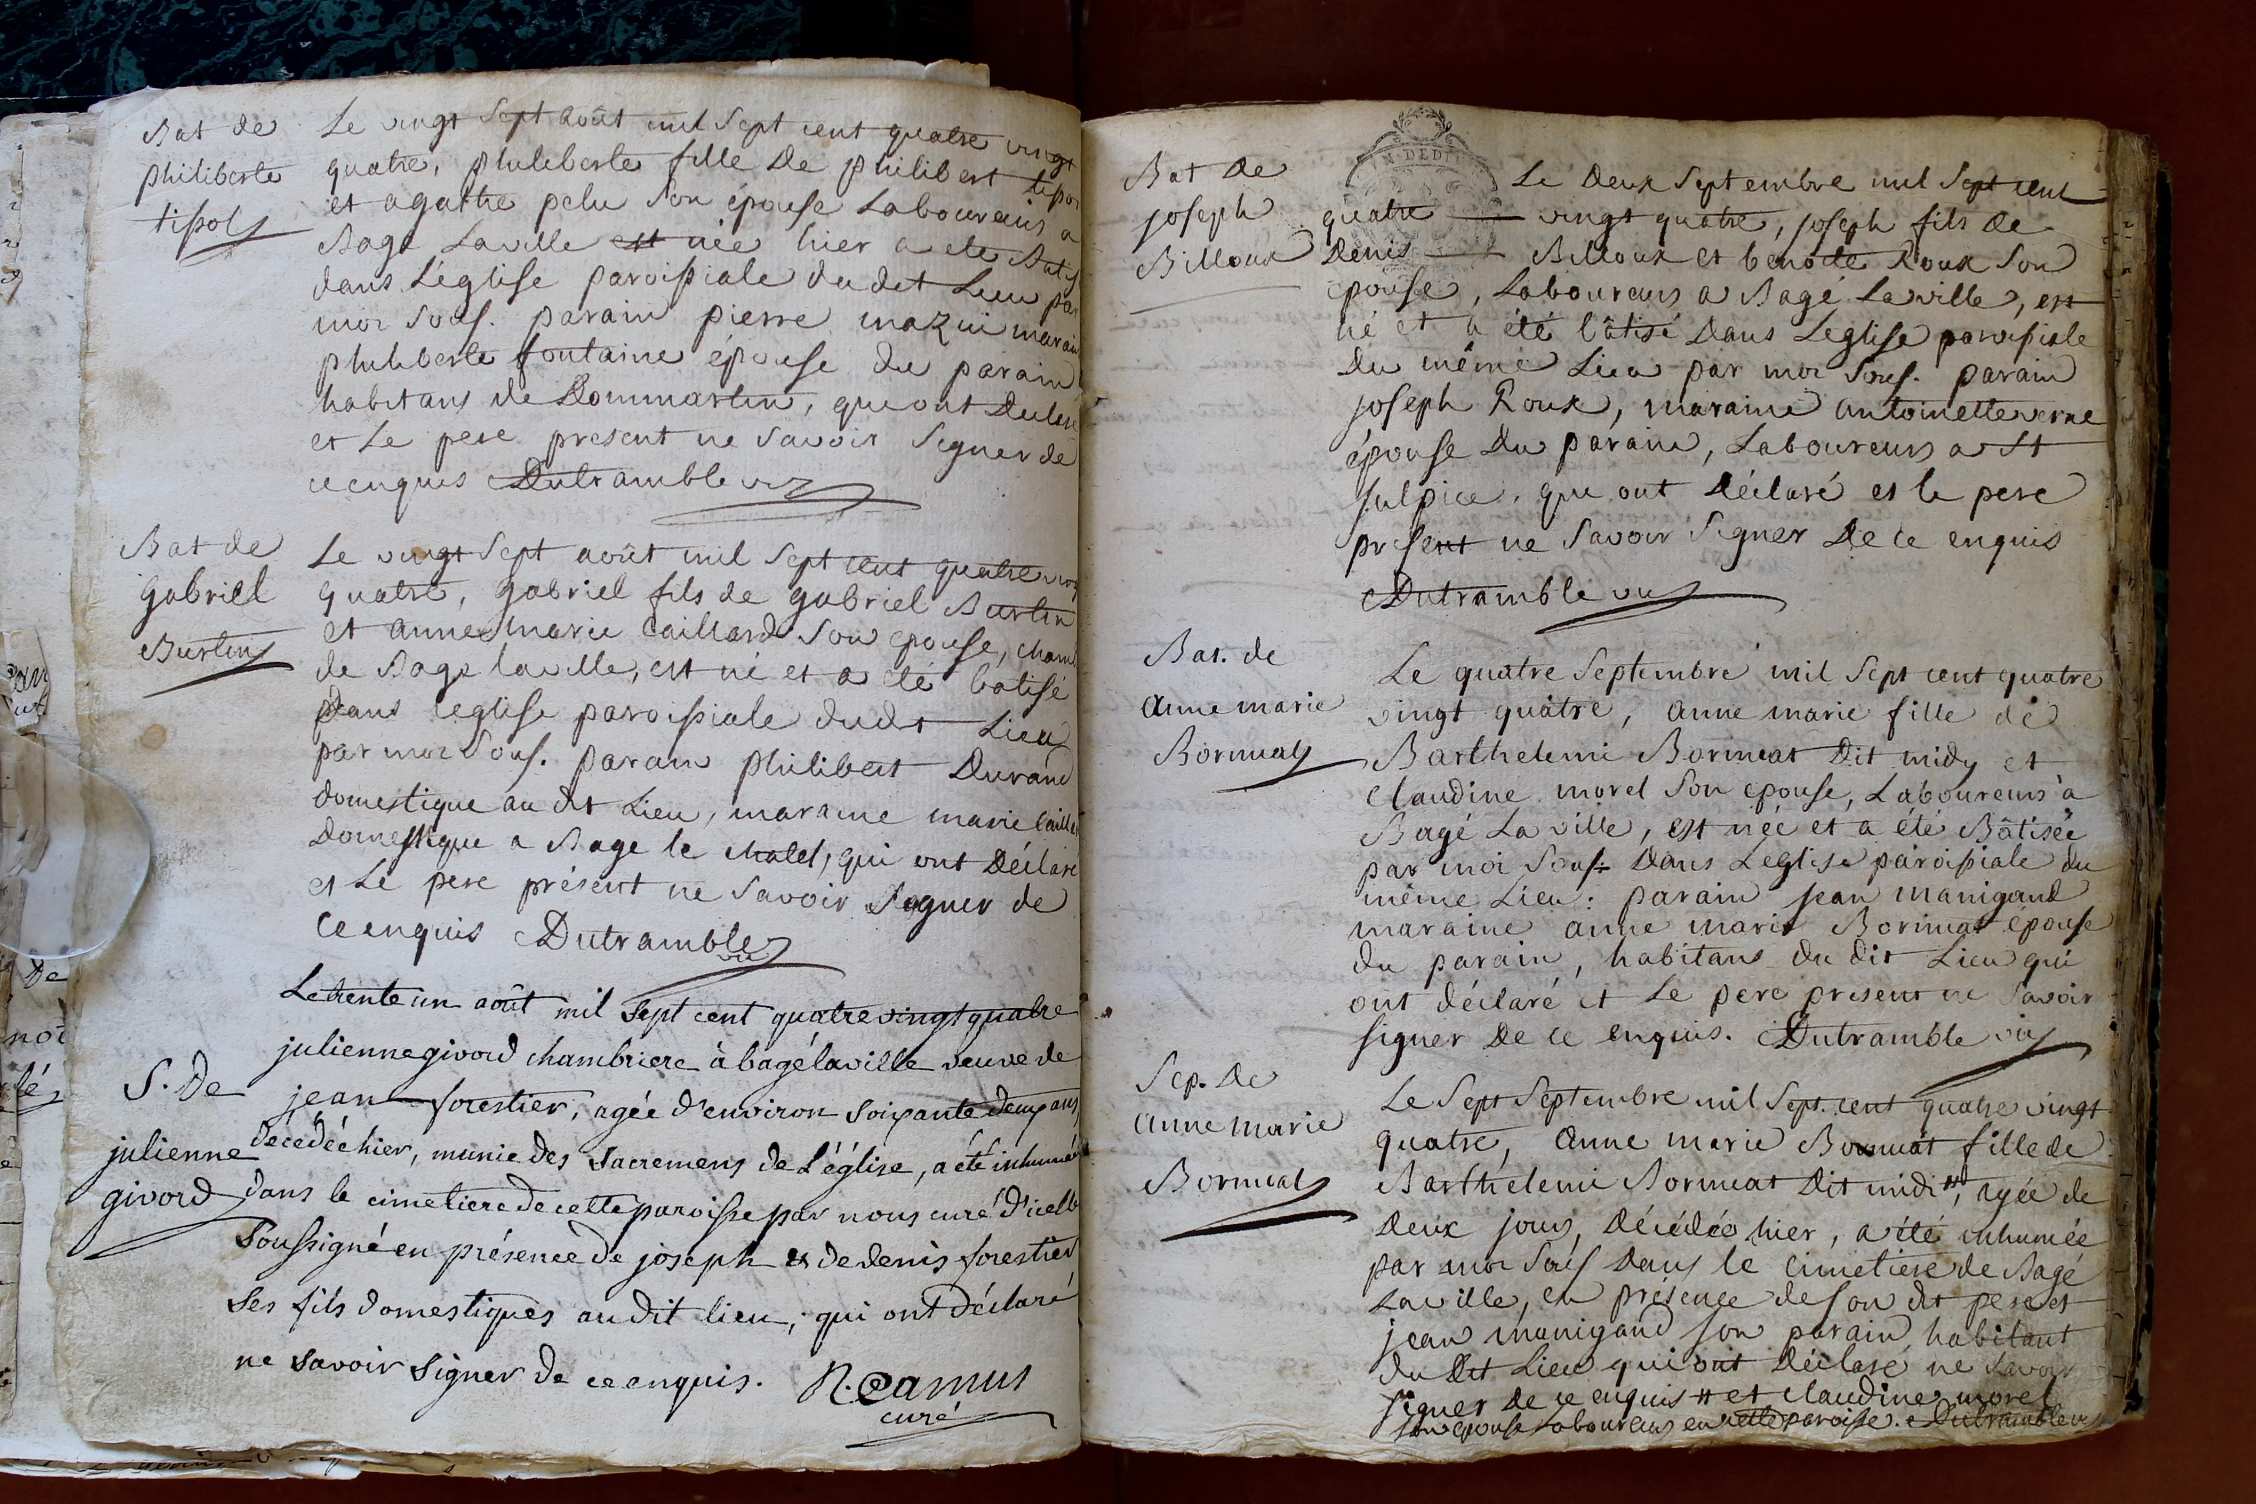 Bat de
philiberte
tipoly
Le vingt Sept août mil Sept cent quatre vingt
quatre, philiberte fille De philibert tipo
et agathe pelu Son épouse Laboureurs a
Bagé Laville est née hier a ete Batis
dans L'église paroissiale du dit Lieu par
moi Sous. parain pierre mazui marain
philiberte fontaine épouse du parain
habitans de Dommartin, qui ont Declaré
et Le pere present ne Savoir Signer de
ce enquis Dutramble vic
Bat de
gabriel
Burtin
Le vingt Sept août mil Sept cent quatre ving
quatre, gabriel fils de gabriel Burtin
et anne marie Caillard Son epouse, cham
de Bagé laville, est né et a eté batisé
Dans l'eglise paroissiale dudt Lieu
par moi Sous. parain philibert Durand
domestique au dt Lieu, maraine marie Caill
Domestique a Bage le chatel, qui ont Déclaré
et Le pere présent ne Savoir Signer de
ce enquis Dutramble vic
S. De
julienne
givord
Le trente un août mil sept cent quatre vingt quatre
julienne givord chambriere à bagé laville veuve de
jean forestier, agée d'environ soixante deux ans,
décédée hier, munie des sacremens de L'église, a été inhumée
dans le cimetiere de cette paroisse par nous curé d'icelle
Soussigné en présence de joseph & de denis forestier
ses fils domestiques audit lieu, qui ont déclaré
ne savoir signer de ce enquis. N. Camus
curé
Bat De
joseph
Billoux
N. DEDI
Le Deux Septembre mil Sept cent
quatre vingt quatre, joseph fils de
Denis Billoux et benoite Roux Son
épouse, Laboureurs a Bagé Laville, est
né et a été bâtisé Dans L'eglise paroissiale
Du même Lieu par moi Sous. parain
joseph Roux, maraine antoinette verne
épouse Du parain, Laboureurs a St
sulpice, qui ont Déclaré et le pere
present ne Savoir Signer De ce enquis
Dutramble vic
Bat. de
Anne marie
Bormeat
Le quatre Septembre mil Sept cent quatre
vingt quatre, Anne marie fille de
Barthelemi Bormeat Dit midy et
Claudine morel Son epouse, Laboureurs à
Bagé La ville, est née et a été Bâtisée
par moi Sous. Dans L'eglise paroissiale du
même Lieu: parain jean manigand
maraine anne marie Bormeat épouse
du parain, habitans du dit Lieu qui
ont déclaré et Le pere present ne savoir
signer De ce enquis. Dutramble vic
Sep. De
Anne marie
Bormeat
Le Sept Septembre mil Sept. cent quatre vingt
quatre, Anne marie Bormeat fille de
Barthelemi Bormeat Dit midi #, agée de
Deux jours, Décédée hier, a été inhumée
par moi Sous Dans le Cimetiere de Bagé
Laville, en présence de son dt pere et
jean manigand son parain habitant
du Dit Lieu qui ont Déclaré ne savoir
signer De ce enquis # et Claudine morel
Son epouse Laboureurs en cette paroisse. Dutramble vic
De
noi